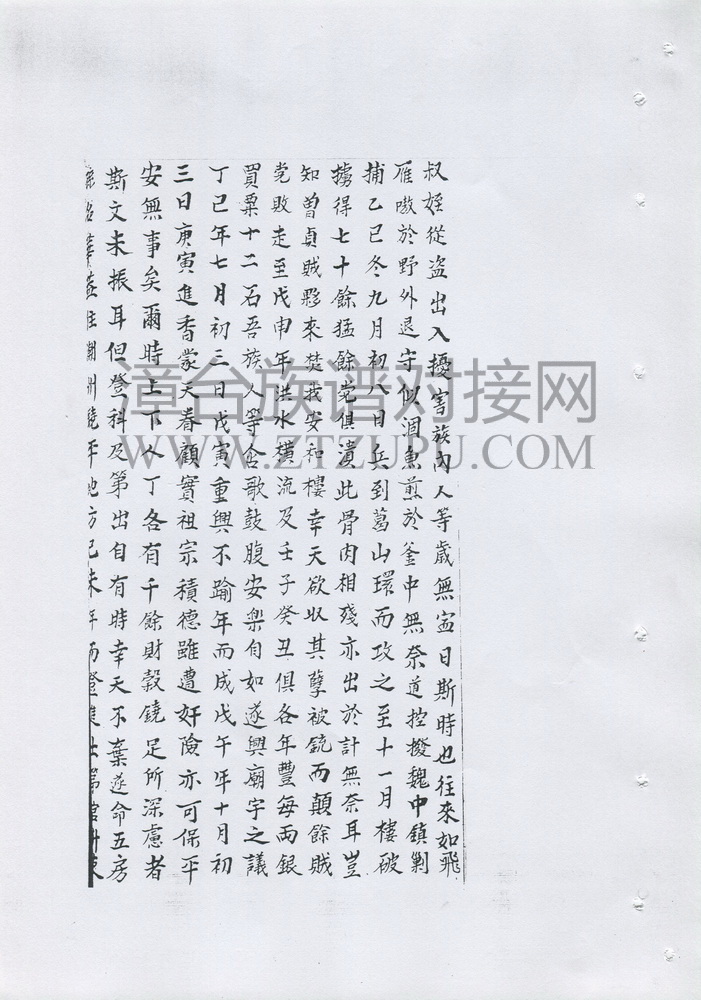 叔姪從盜出入擾害族內人等歲無寍日斯時也往來如飛
雁嗷於野外退守似涸魚煎於釜中無奈道控撥魏中鎮剿
捕乙巳冬九月初八日兵到葛山環而攻之至十一月樓破
擄得七十餘猛餘党俱潰此骨肉相殘亦出於計無奈耳豈
知曽貞賊夥來焚我安和樓幸天欲収其孽被銃而顛餘賊
党敗走至戊申年洪水橫流及壬子癸丑俱各年豐每両銀
買粟十二石吾族人等含歌鼓腹安樂自如遂興廟宇之議
丁巳年七月初三日戊寅重興不踰年而成戊午年十月初
三日庚寅進香蒙天眷顧實祖宗積德雖遭奸險亦可保平
安無事矣爾時上下人丁各有千餘財穀饒足所深慮者
斯文未振耳但登科及第出自有時幸天不棄遂命五房
住潮州饒平地方己未年而登進士第官
漳台族谱对接网
WWW.ZTZUPU.COM